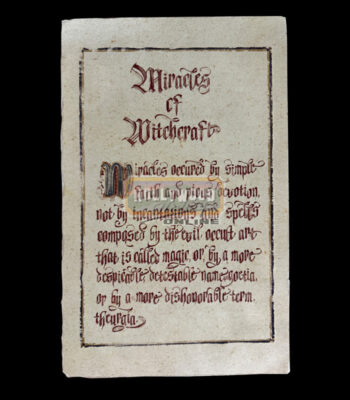 Miracles
of
Witchcraft
Miracles occured by simple
faith and pious devotion,
not by incantations and spells
composed by the evil occult art
that is called magic, or by a more
despicable, detestable name, goetia,
or by a more dishonorable term
theurgia.
ONLINE